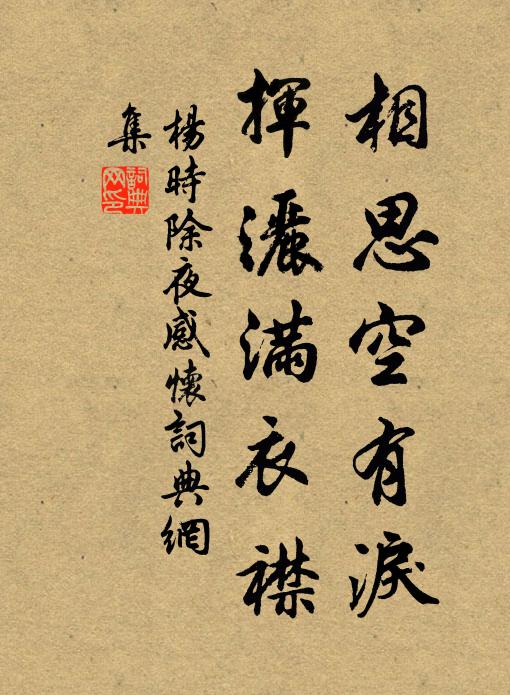 相思空有淚
揮灑滿衣襟
楊時除夜感懷詞典網
集
詞典網印